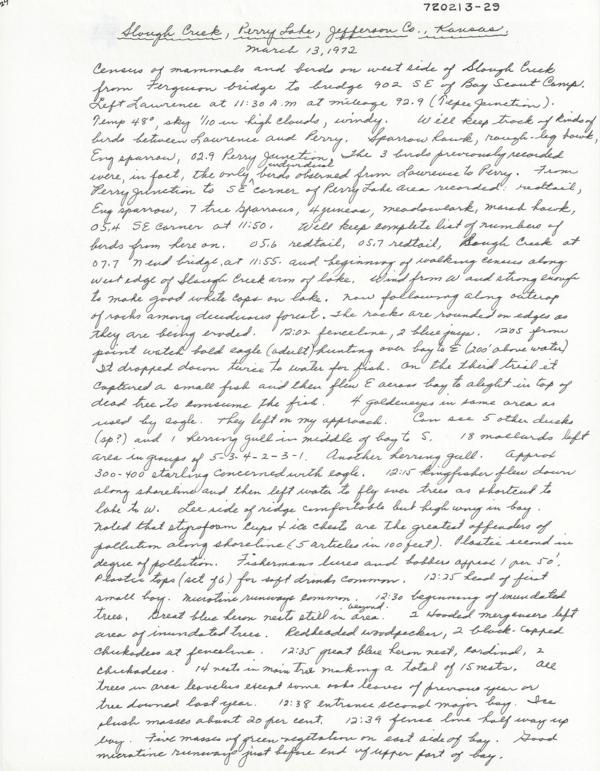 29
720213-29
Slough Creek, Perry Lake, Jefferson Co., Kansas.
March 13, 1972
Census of mammals and birds on west side of Slough Creek
from Ferguson bridge to bridge 902 SE of Boy Scout Camp.
Left Lawrence at 11:30 A.M at mileage 92.9 (Tepee Junction).
Temp 48°, sky 1/10 in high clouds, windy. Will keep track of kinds of
birds between Lawrence and Perry. Sparrow hawk, rough-leg hawk,
Eng sparrow, 02.9 Perry Junction. The 3 birds previously recorded
were, in fact, the only individual birds observed from Lawrence to Perry. From
Perry Junction to SE corner of Perry Lake area recorded: redtail,
Eng sparrow, 7 tree sparrows, 4 guineas, meadowlark, marsh hawk,
05.4 SE corner at 11:50. Will keep complete list of numbers of
birds from here on. 05.6 redtail, 05.7 redtail, Slough Creek at
07.7 N end bridge, at 11:55. and beginning of walking census along
west edge of Slough Creek arm of lake. Wind from W and strong enough
to make good white caps on lake. Now following along outcrop
of rocks among deciduous forest. The rocks are rounded on edges as
they are being eroded. 12:02 fenceline, 2 blue jays. 1205 from
point watch bald eagle (adult) hunting over bay to E (200' above water)
It dropped down twice to water for fish. On the third trial it
captured a small fish and then flew E across bay to alight in top of
dead tree to consume the fish. 4 goldeneyes in same area as
used by eagle. They left on my approach. Can see 5 other ducks
(sp?) and 1 herring gull in middle of bay to S. 18 mallards left
area in groups of 5-3-4-2-3-1. Another herring gull. Approx
300-400 starling concerned with eagle. 12:15 kingfisher flew down
along shoreline and then left water to fly over trees as shortcut to
lake to W. Lee side of ridge comfortable but high wing in bay.
Noted that styrofoam cups & ice chests are the greatest offenders of
pollution along shoreline (5 articles in 100 feet). Plastic second in
degree of pollution. Fishermans lures and bobbers approx 1 per 50'.
Plastic tops (set of 6) for soft drinks common. 12:25 head of first
small bay. Microtine runways common. 12:30 beginning of inundated
trees. Great blue heron nests still in area beyond. 2 Hooded mergansers left
area of inundated trees. Redheaded woodpecker, 2 black-capped
chickadees at fenceline. 12:35 great blue heron nest, cardinal, 2
chickadees. 14 nests in main tree making a total of 15 nests. All
trees in area leafless except some oaks leaves of previous year or
tree downed last year. 12:38 entrance second major bay. Ice
slush masses about 20 per cent. 12:39 fence line half way up
bay. Five masses of green vegetation on east side of bay. Good
microtine runways just before end of upper part of bay.